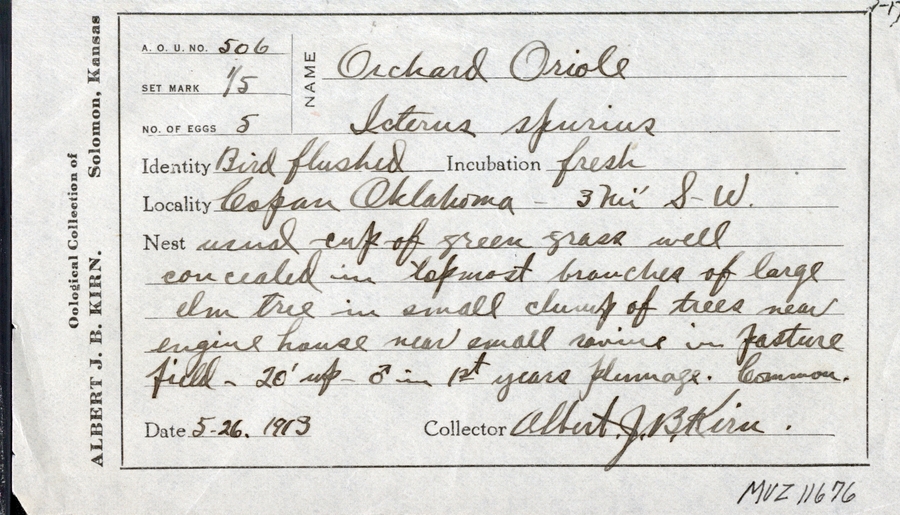 Oological Collection of
ALBERT J. B. KIRN. Solomon, Kansas
A. O. U. NO. 506
SET MARK 1/5
NO. OF EGGS 5
NAME Orchard Oriole
Icterus spurius
Identity Bird flushed Incubation fresh
Locality Copan Oklahoma - 3 mi S-W.
Nest usual cup of green grass well
concealed in topmost branches of large
elm tree in small clump of trees near
engine house near small ravine in pasture
field - 20' up - ♂ in 1st years plumage. Common.
Date 5-26. 1913 Collector Albert. J. B. Kirn.
MVZ 11676